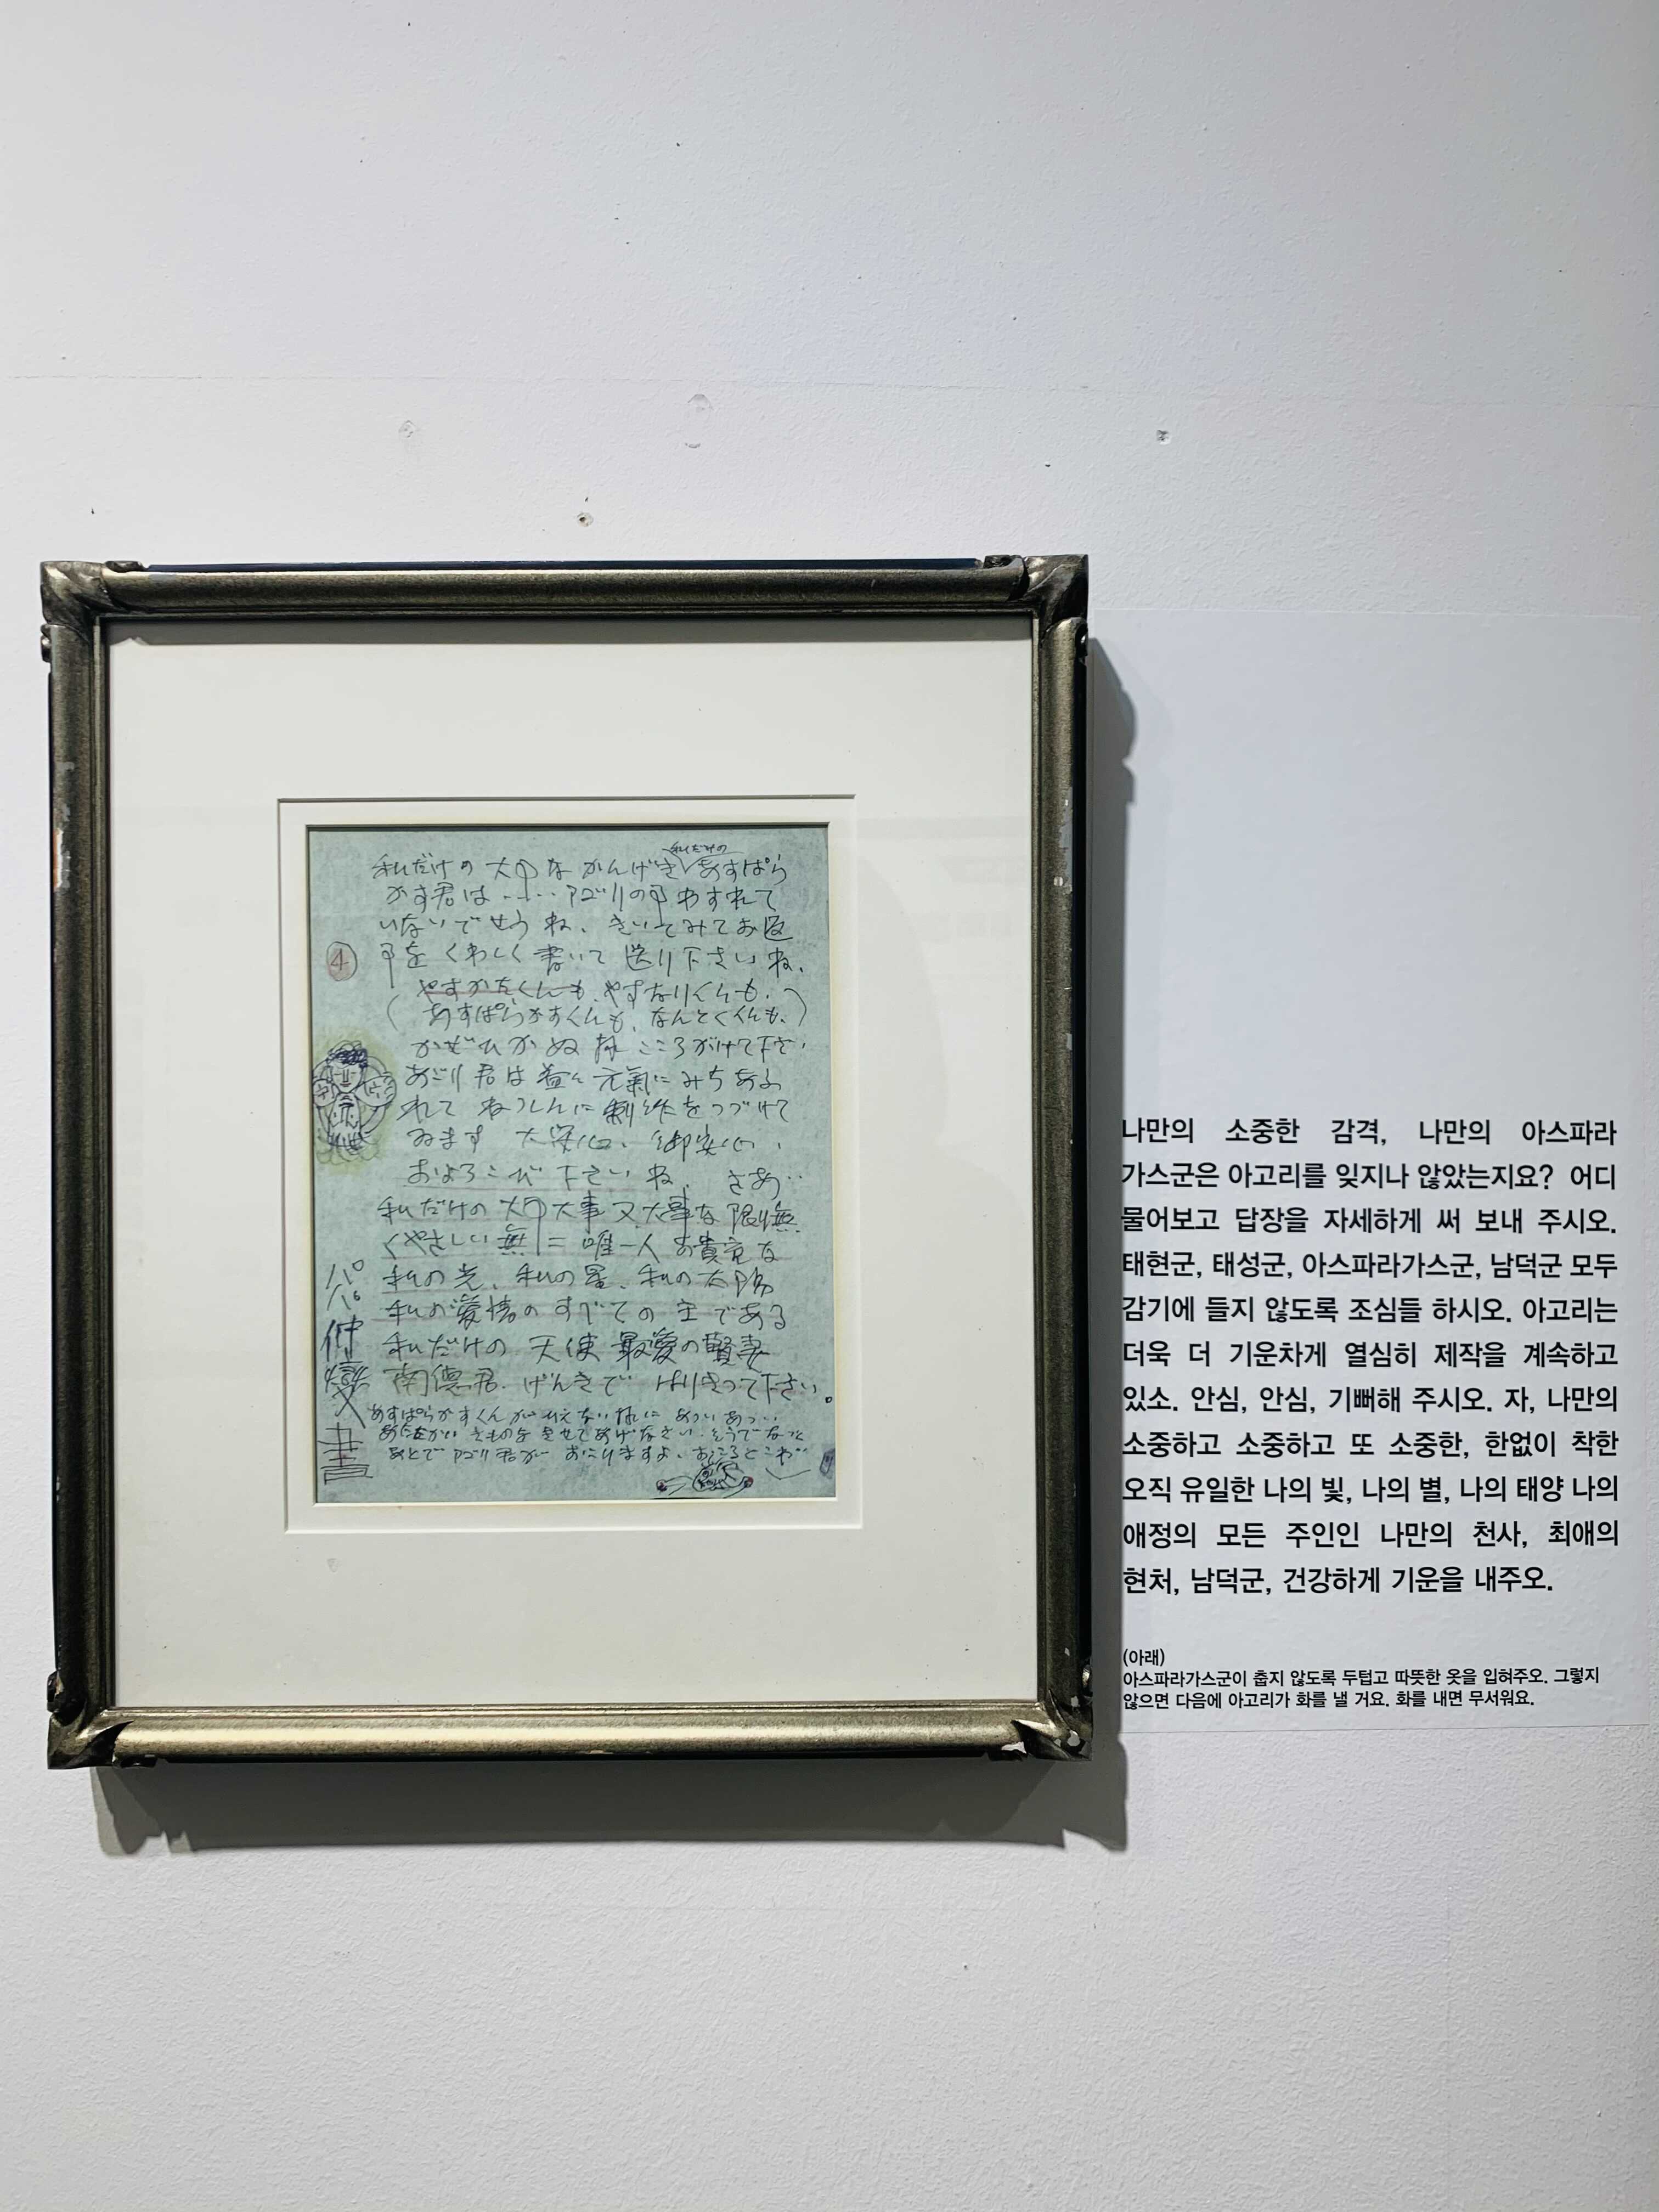 私だけの
私だけの 大中な かんげき あすぱら
がす君は・・・・・アゴリの中 わすれて
いないでせう ね、きいてみてお返
中を くわしく 書いて 送り下さい ね、
④
やすかたくんも、やすなりくんも、
(あすぱらがすくんも、なんとくくんも、)
かぜひかぬ様 こころがけて下さい
あごり君は益々元氣にみちあふ
れて ねっしんに 制作をつづけて
ゐます 大安心、御安心、
およろこび 下さい ね、 さあ・・
私だけの 大中大事又大事な 限り無
くやさしい 無二 唯一人 お貴重な
私の光、私の星、私の太陽
私の愛情の すべての 主である
私だけの 天使 最愛の賢妻
南德君、げんきで はりきって下さい。
パパ
仲燮
書
あすぱらがすくんが ひえない様に あつい あつい
あたたかい きものを きせてあげなさい、そうでないと
あとで アゴリ君が おこりますよ、おこるとこわい
나만의 소중한 감격, 나만의 아스파라
가스군은 아고리를 잊지나 않았는지요? 어디
물어보고 답장을 자세하게 써 보내 주시오.
태현군, 태성군, 아스파라가스군, 남덕군 모두
감기에 들지 않도록 조심들 하시오. 아고리는
더욱 더 기운차게 열심히 제작을 계속하고
있소. 안심, 안심, 기뻐해 주시오. 자, 나만의
소중하고 소중하고 또 소중한, 한없이 착한
오직 유일한 나의 빛, 나의 별, 나의 태양 나의
애정의 모든 주인인 나만의 천사, 최애의
현처, 남덕군, 건강하게 기운을 내주오.
(아래)
아스파라가스군이 춥지 않도록 두텁고 따뜻한 옷을 입혀주오. 그렇지
않으면 다음에 아고리가 화를 낼 거요. 화를 내면 무서워요.